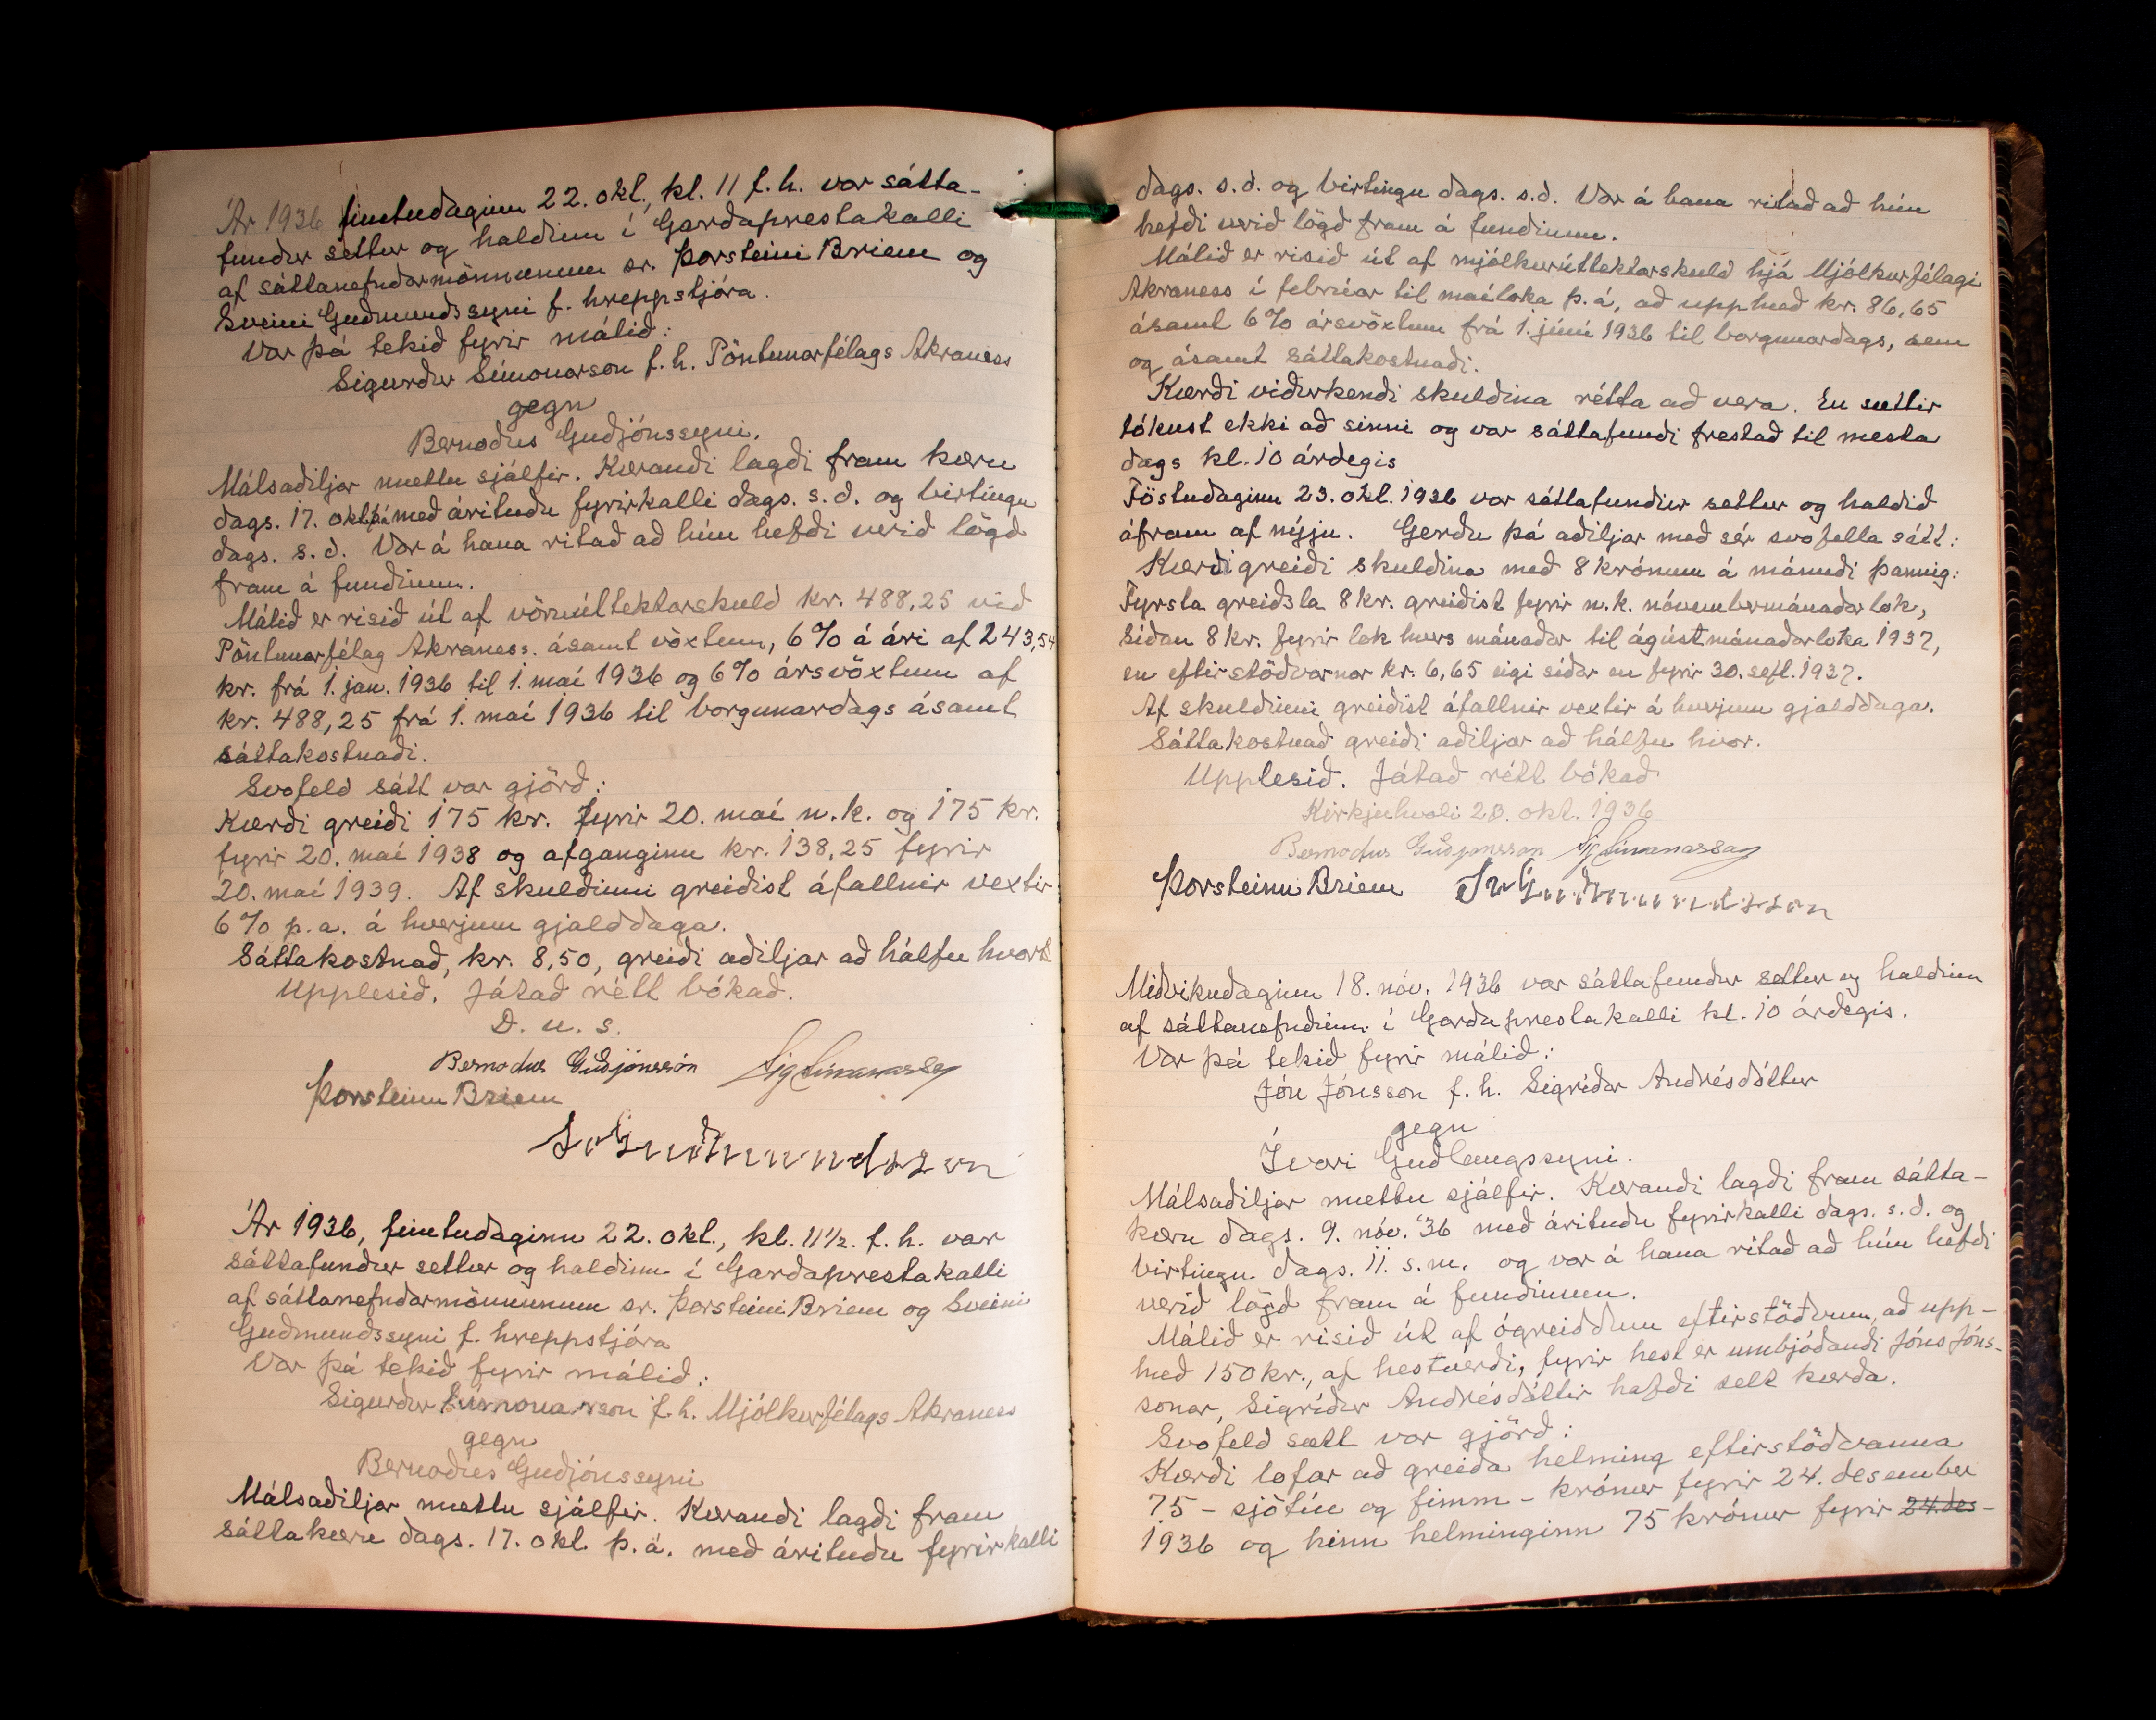 Ár 1936 fimtudaginn 22. okt., kl. 11 f.h. var sátta-
fundur settur og haldinn í Garðaprestakalli
af sáttanefndarmönnunum sr. Þorsteini Briem og
Sveini Guðmundssyni f. hreppstjóra.
Var þá tekið fyrir málið:
Sigurður Símonarson f.h. Pöntunarfélags Akraness
gegn
Bernodus Guðjónssyni.
Málsaðiljar mættu sjálfir. Kærandi lagði fram kæru
dags. 17. okt. þá með árituðu fyrirkalli dags. s.d. og birtingu
dags. s.d. Var á hana ritað að hún hefði verið lögð
fram á fundinum.
Málið er risið út af vöruúttektarskuld kr. 488,25 við
Pöntunarfélag Akraness. ásamt vöxtum, 6% á ári af 243,54
kr. frá 1. jan. 1936 til 1. maí 1936 og 6% ársvöxtum af
kr. 488,25 frá 1. maí 1936 til borgunardags ásamt
sáttakostnaði.
Svofeld sátt var gjörð:
Kærði greiði 175 kr. fyrir 20. maí n.k. og 175 kr.
fyrir 20. maí 1938 og afganginn kr. 138,25 fyrir
20. maí 1939. Af skuldinni greiðist áfallnir vextir
6% p.a. á hverjum gjalddaga.
Sáttakostnað, kr. 8,50, greiði aðiljar að hálfu hvor
Upplesið. Játað rétt bókað.
D. u. s.
Bernodus Guðjónsson Sig Símonarson
Þorsteinn Briem
Sv Guðmundsson
Ár 1936, fimtudaginn 22. okt., kl. 11½. f.h. var
sáttafundur settur og haldinn í Garðaprestakalli
af sáttanefndarmönnunum sr. Þorsteini Briem og Sveini
Guðmundssyni f. hreppstjóra
Var þá tekið fyrir málið:
Sigurður Símonarson f.h. Mjólkurfélags Akraness
gegn
Bernodus Guðjónssyni
Málsaðiljar mættu sjálfir. Kærandi lagði fram
sáttakæru dags. 17. okt. þ.á. með árituðu fyrirkalli
dags. s.d. og birtingu dags. s.d. Var á hana ritað að hún
hefði verið lögð fram á fundinum.
Málið er risið út af mjólkurúttektarskuld hjá Mjólkurfélagi
Akraness í febrúar til maíloka þ.á, að upphæð kr. 86,65
ásamt 6% ársvöxtum frá 1. júní 1936 til borgunardags, sem
og ásamt sáttakostnaði.
Kærði viðurkendi skuldina rétta að vera. En sættir
tókust ekki að sinni og var sáttafundi frestað til næsta
dags kl. 10 árdegis
Föstudaginn 23. okt. 1936 var sáttafundur settur og haldið
áfram af nýju. Gerðu þá aðiljar með sér svofella sátt:
Kærði greiði skuldina með 8 krónum á mánuði þannig:
Fyrsta greiðsla 8 kr. greiðist fyrir n.k. nóvembermánaðarlok,
síðan 8 kr. fyrir lok hvers mánaðar til ágústmánaðarloka 1937,
en eftirstöðvarnar kr. 6,65 eigi síðar en fyrir 30. sept. 1937.
Af skuldinni greiðist áfallnir vextir á hverjum gjalddaga.
Sáttakostnað greiði aðiljar að hálfu hvor.
Upplesið. Játað rétt bókað
Kirkjuhvoli 23. okt. 1936
Bernodus Guðjónsson Sig Símonarson
Þorsteinn Briem Sv Guðmundsson
Miðvikudaginn 18. nóv. 1936 var sáttafundur settur og haldinn
af sáttanefndinni í Garðaprestakalli kl. 10 árdegis.
Var þá tekið fyrir málið:
Jón Jónsson f.h. Sigríðar Andrésdóttur
gegn
Ívari Guðlaugssyni.
Málsaðiljar mættu sjálfir. Kærandi lagði fram sátta-
kæru dags. 9. nóv. '36 með árituðu fyrirkalli dags. s.d. og
birtingu dags. 11. s.m. og var á hana ritað að hún hefði
verið lögð fram á fundinum.
Málið er risið út af ógreiddum eftirstöðvum, að upp-
hæð 150 kr., af hestverði, fyrir hest er umbjóðandi Jóns Jóns-
sonar, Sigríður Andrésdóttir hafði selt kærða.
Svofeld sætt var gjörð:
Kærði lofar að greiða helming eftirstöðvanna
75 - sjötíu og fimm - krónur fyrir 24. desember
1936 og hinn helminginn 75 krónur fyrir 24. des-